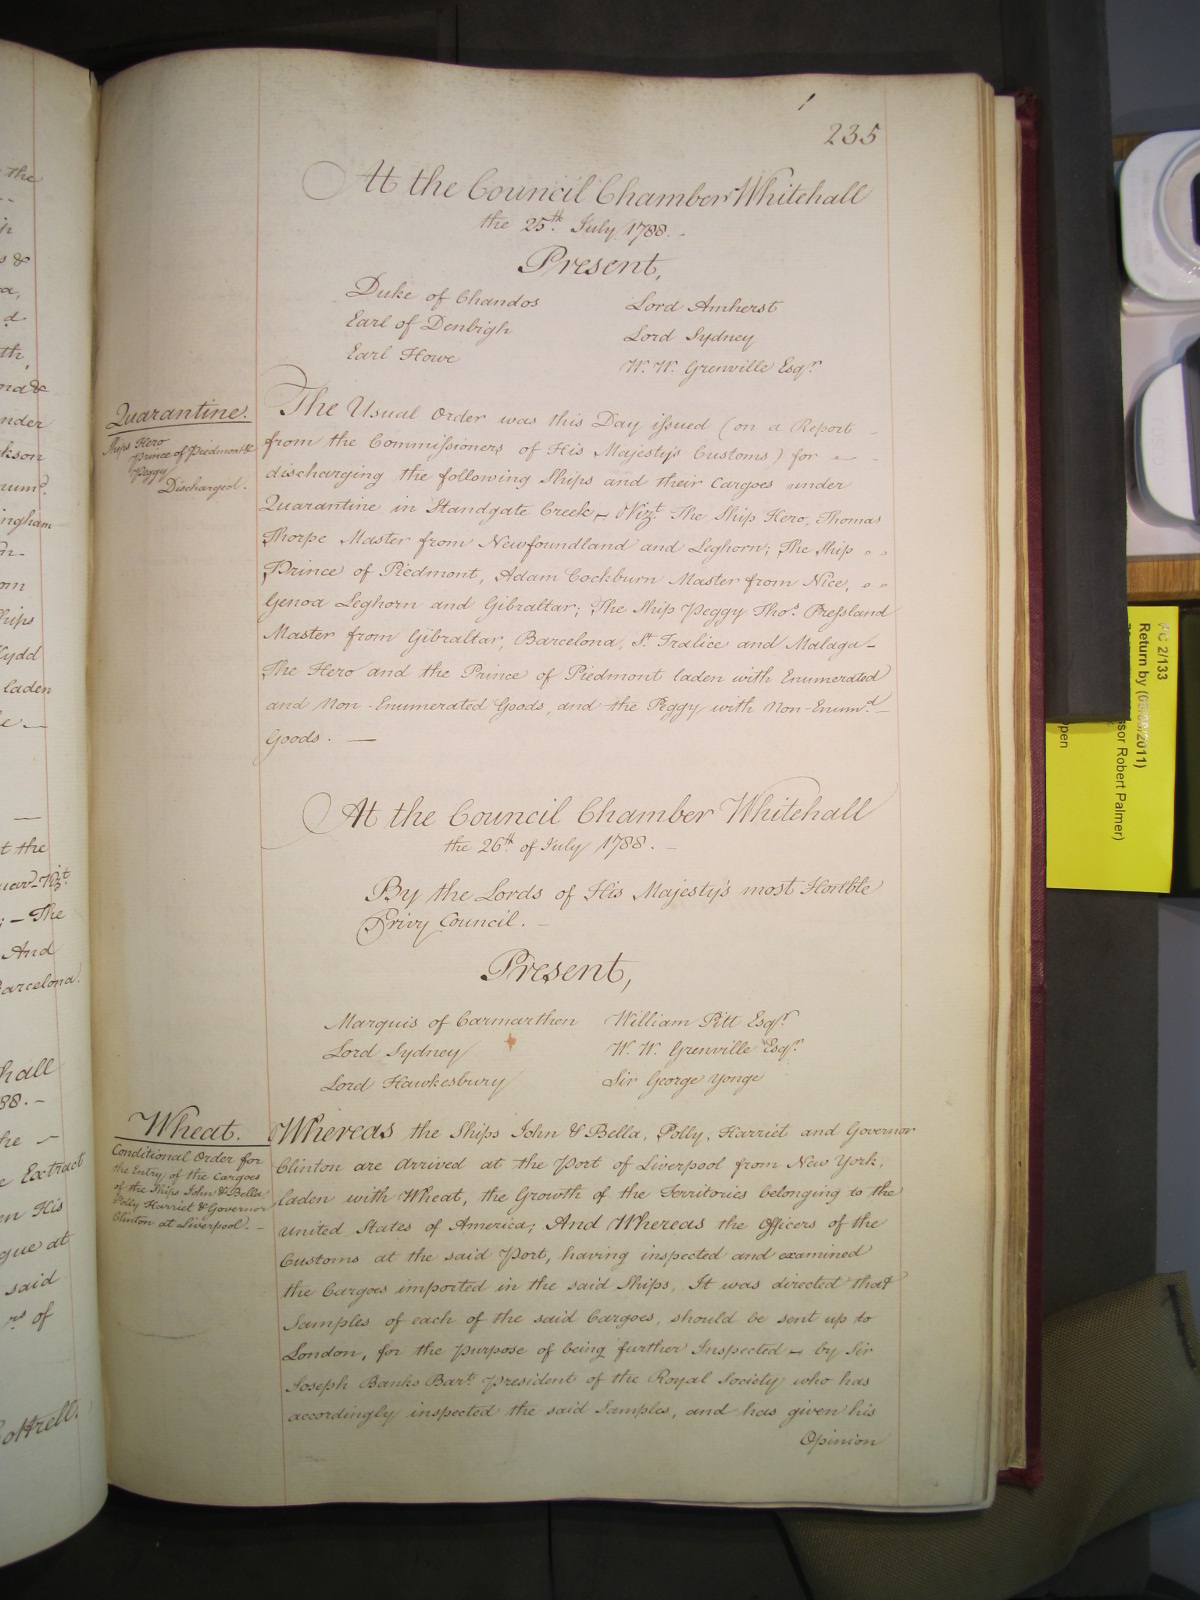 235
At the Council Chamber Whitehall
the 25th July 1788.-
Present,
Duke of Chandos
Earl of Denbigh
Earl Howe
Lord Amherst
Lord Sydney
W. W. Grenville Esqr.
Quarantine.
Ships Hero
Prince of Piedmont &
Peggy
Discharged.
The Usual Order was this Day issued (on a Report
from the Commissioners of His Majesty's Customs) for
discharging the following Ships and their Cargoes under
Quarantine in Standgate Creek - Vizt. The Ship Hero, Thomas
Thorpe Master from Newfoundland and Leghorn; The Ship
Prince of Piedmont, Adam Cockburn Master from Nice,
Genoa Leghorn and Gibraltar; The Ship Peggy Thos. Pressland
Master from Gibraltar, Barcelona, St. and Malaga -
The Hero and the Prince of Piedmont laden with Enumerated
and Non-Enumerated Goods, and the Peggy with Non-Enumd. -
Goods. —
At the Council Chamber Whitehall
the 26th of July 1788. -
By the Lords of His Majesty's most Honble
Privy Council. -
Present,
Marquis of Carmarthen
Lord Sydney
Lord Hawkesbury
William Pitt Esqr.
W. W. Grenville Esqr.
Sir George Yonge
Wheat.
Conditional Order for
the Entry of the Cargoes
of the Ships John & Bella
Polly Harriet & Governor
Clinton at Liverpool. -
Whereas the Ships John & Bella, Polly, Harriet and Governor
Clinton are arrived at the Port of Liverpool from New York,
laden with Wheat, the Growth of the Territories belonging to the
United States of America; And Whereas the Officers of the
Customs at the said Port, having inspected and examined
the Cargoes imported in the said Ships, It was directed that
Samples of each of the said Cargoes, should be sent up to
London, for the purpose of being further Inspected - by Sir
Joseph Banks Bart. President of the Royal Society who has
accordingly inspected the said Samples, and has given his
Opinion
the
laden
t the
- The
And
Barcelona.
hall
88.-
Extract
His
at
said
of
PC 2/133
Return by (2011)
Robert Palmer)